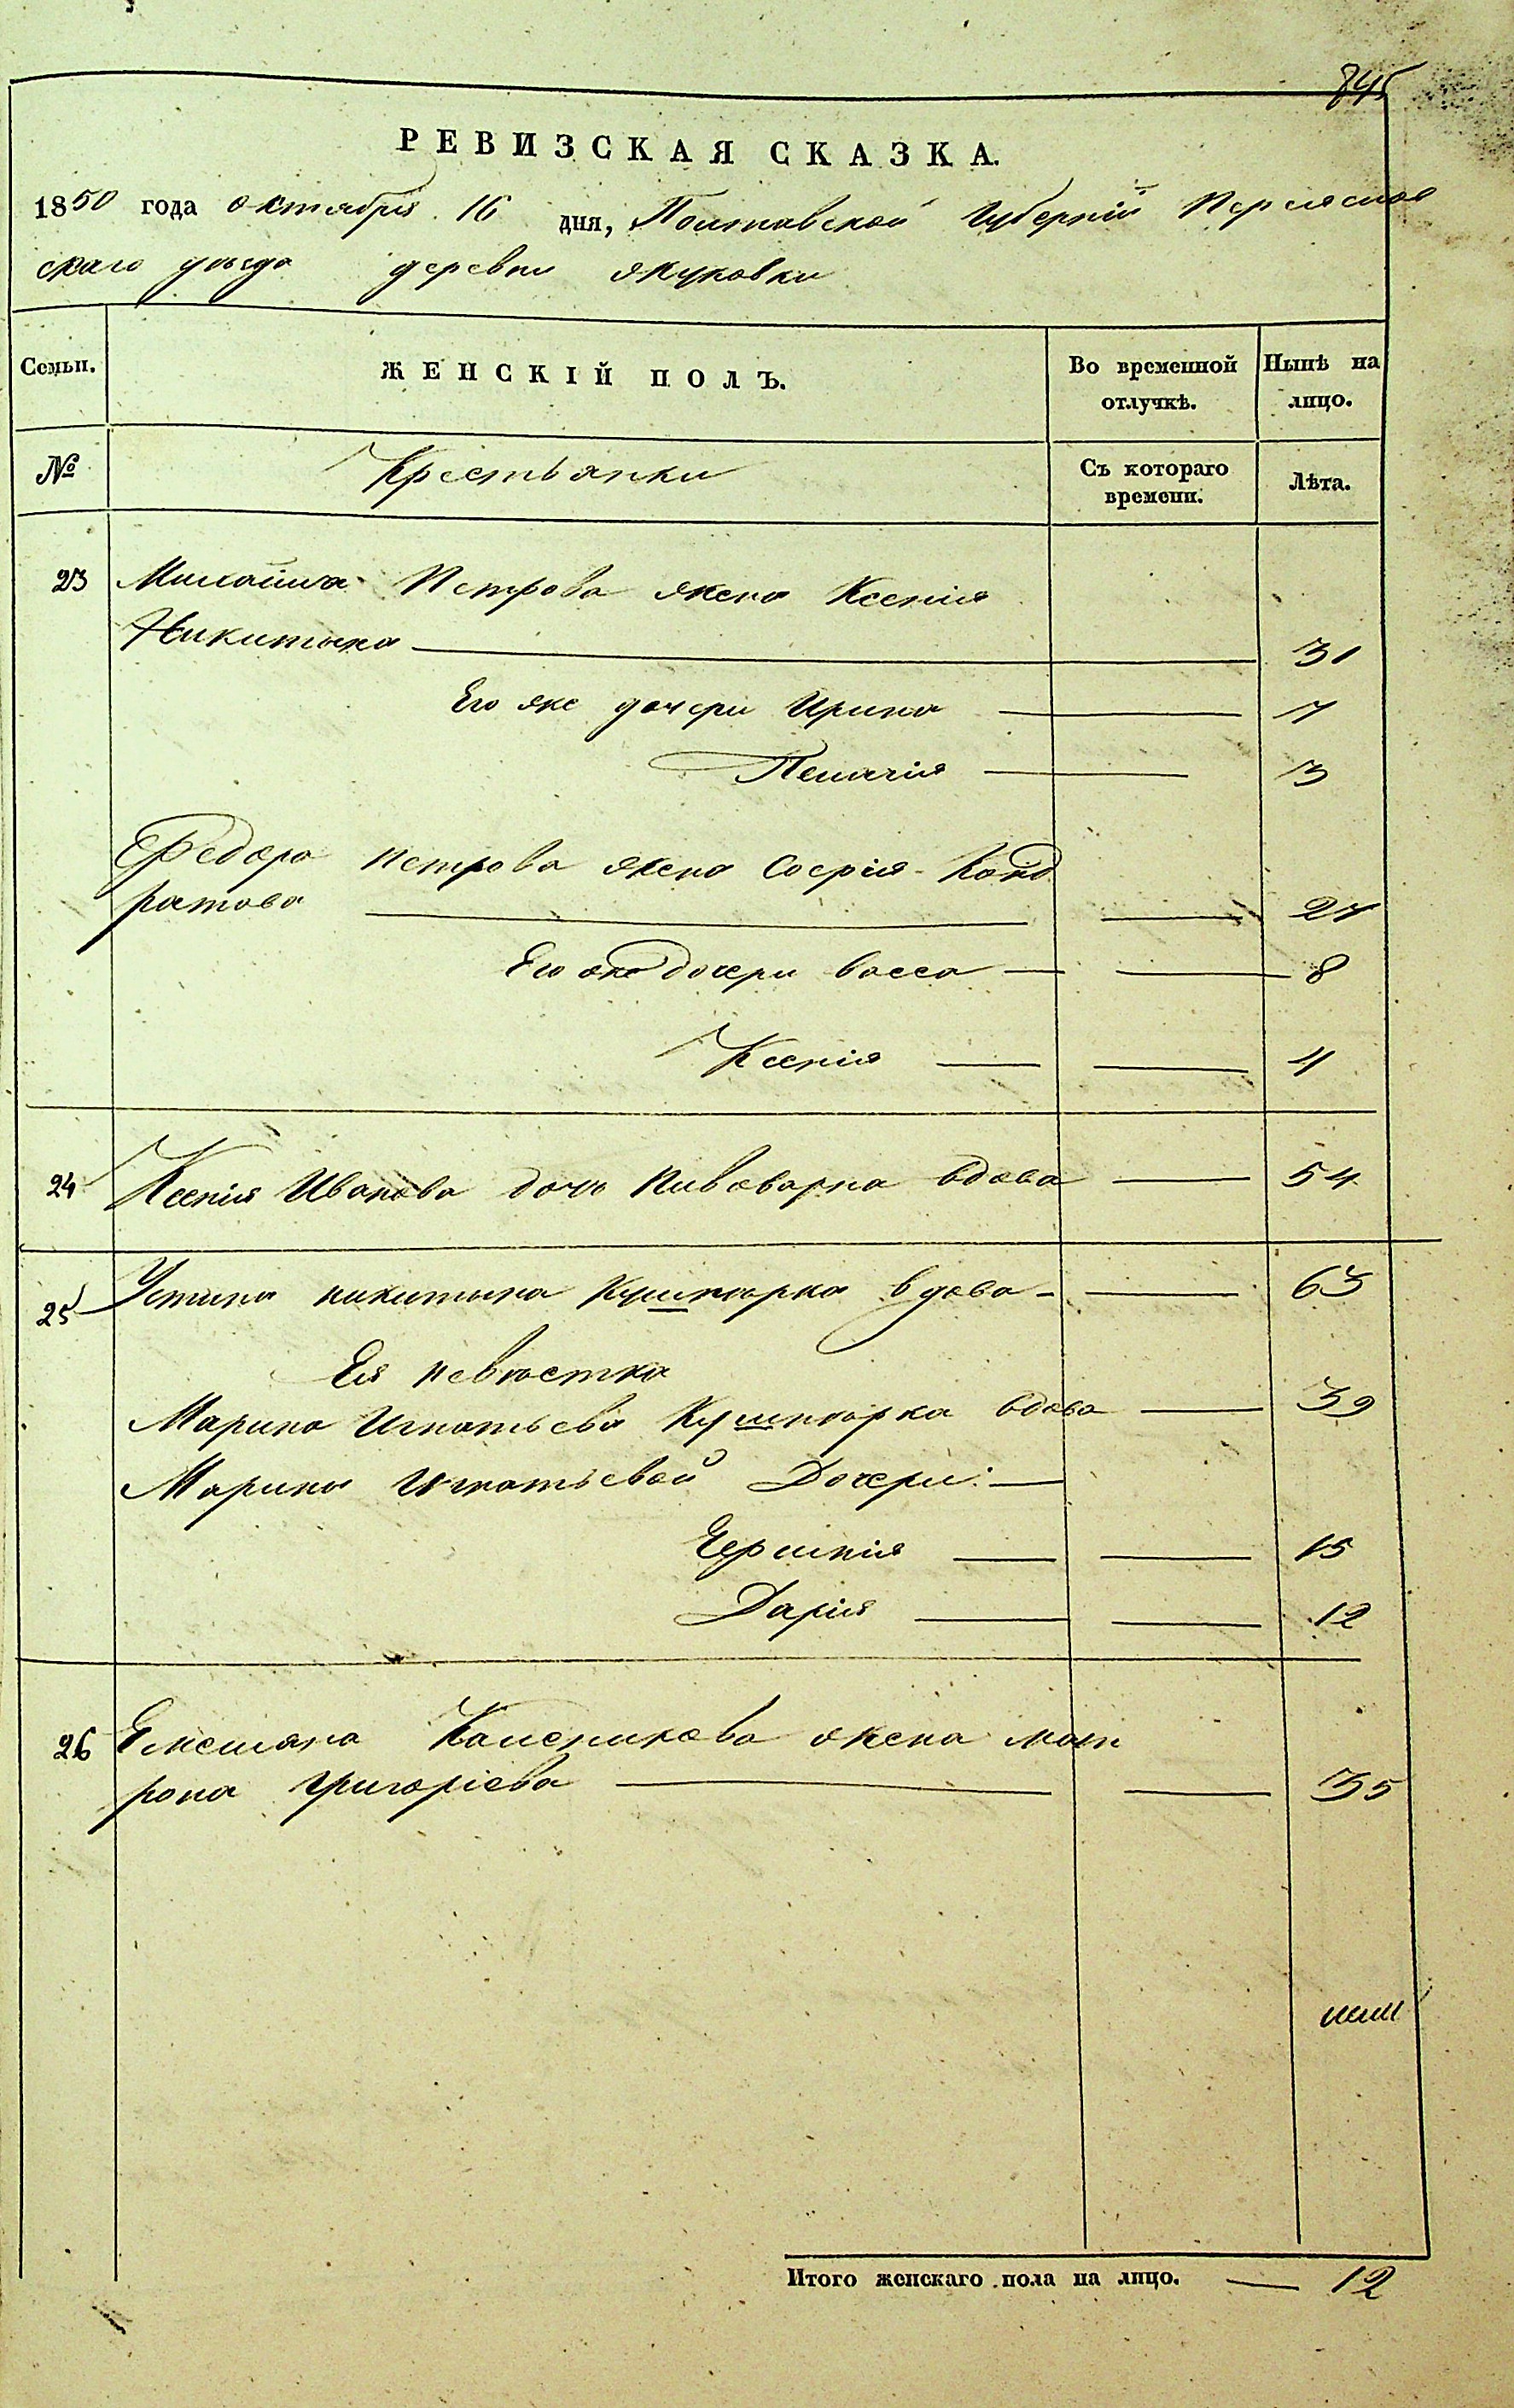 845
РЕВИЗСКАЯ СКАЗКА.
1850 года октября 16 дня, Полтавской Губерніи Переяслав
скаго уѣзда деревни Яцковки
Семьи. ЖЕНСКІЙ ПОЛЪ. Во временной отлучкѣ. Нынѣ на лицо.
№ Крестьянки Съ котораго времени. Лѣта.
23 Михайла Петрова жена Ксенія
Никитина 31
Его же дочери Ирина 7
Пелагія 3
Федора Петрова жена Софія Конд
ратова 27
Его же дочери Васса 8
Ксенія 4
24 Ксенія Иванова дочь Пивоварна вдова 54
25 Устина Никитина Кушнарка вдова 63
Ея невѣстка
Марина Игнатьева Кушнарка вдова 39
Марины Игнатьевой Дочери:
15
Дарія 12
26 Емельяна Каленикова жена Мат
рона Григоріева 35
Итого женскаго пола на лицо. 12